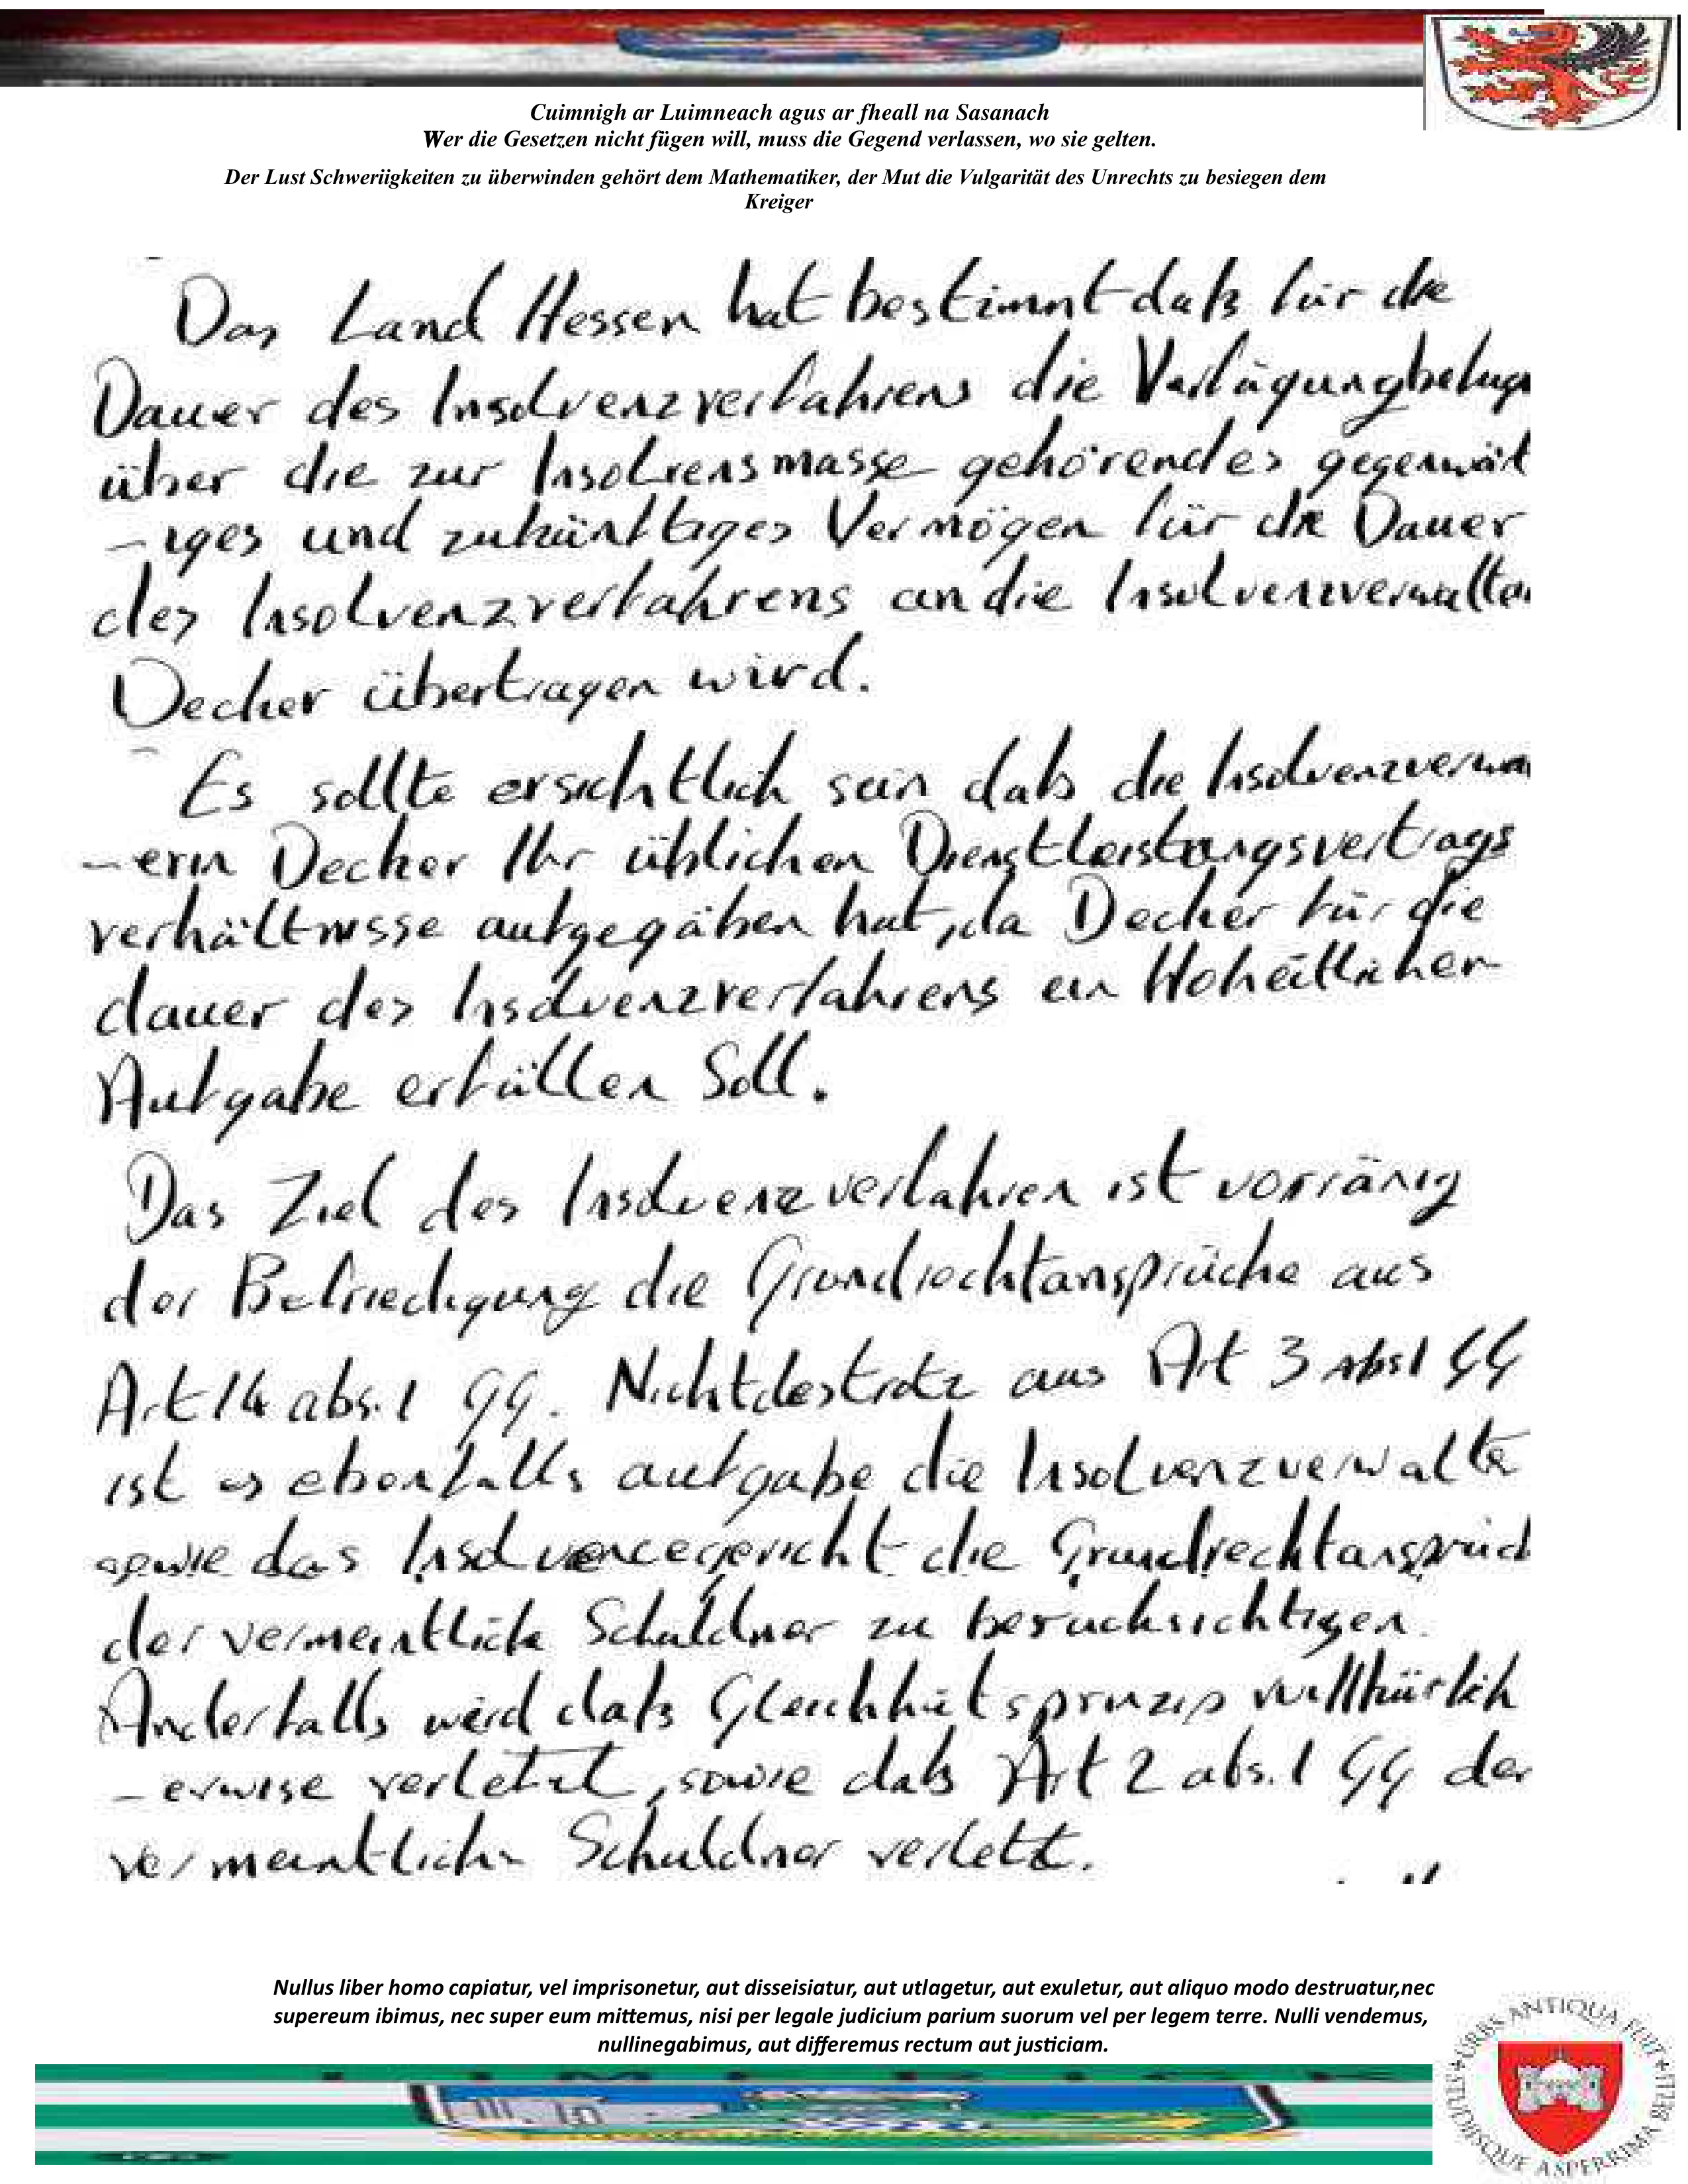 Cuimnigh ar Luimneach agus ar fheall na Sasanach
Wer die Gesetzen nicht fügen will, muss die Gegend verlassen, wo sie gelten.
Der Lust Schweriigkeiten zu überwinden gehört dem Mathematiker, der Mut die Vulgarität des Unrechts zu besiegen dem
Kreiger
Das Land Hessen hat bestimmt daß für die
Dauer des Insolvenzverfahrens die Verfügungbefug
über die zur Insolvensmasse gehörendes gegenwät
-iges und zukünftiges Vermögen für die Dauer
des Insolvenzverfahrens an die Insolvenzverwalter
Decker übertragen wird.
Es sollte ersichtlich sein daß die Insolvenzverwa
-erin Decker Ihr üblichen Dienstleistungsvertrags
verhältnisse aufgegäben hat, da Decker für die
dauer des Insolvenzverfahrens ein Hoheitlicher
Aufgabe erfüllen Soll.
Das Ziel des Insolvenzverfahren ist vorränig
der Befriedigung die Grundrechtansprüche aus
Art 14 abs. 1 GG. Nichtdestrotz aus Art 3 Abs 1 GG
ist es ebenfalls aufgabe die Insolvenzverwalte
sowie das Insolvencegericht die Grundrechtansprüch
der vermeintliche Schuldner zu berucksichtigen.
Anderfalls wird daß Gleichheitsprinzip willkürlich
-erwise verletzt, sowie daß Art 2 abs. 1 GG der
vermeintliche Schuldner verletzt.
Nullus liber homo capiatur, vel imprisonetur, aut disseisiatur, aut utlagetur, aut exuletur, aut aliquo modo destruatur,nec
supereum ibimus, nec super eum mittemus, nisi per legale judicium parium suorum vel per legem terre. Nulli vendemus,
nullinegabimus, aut differemus rectum aut justiciam.
URBS ANTIQUA FUIT STUDIISQUE ASPERRIMA BELLI